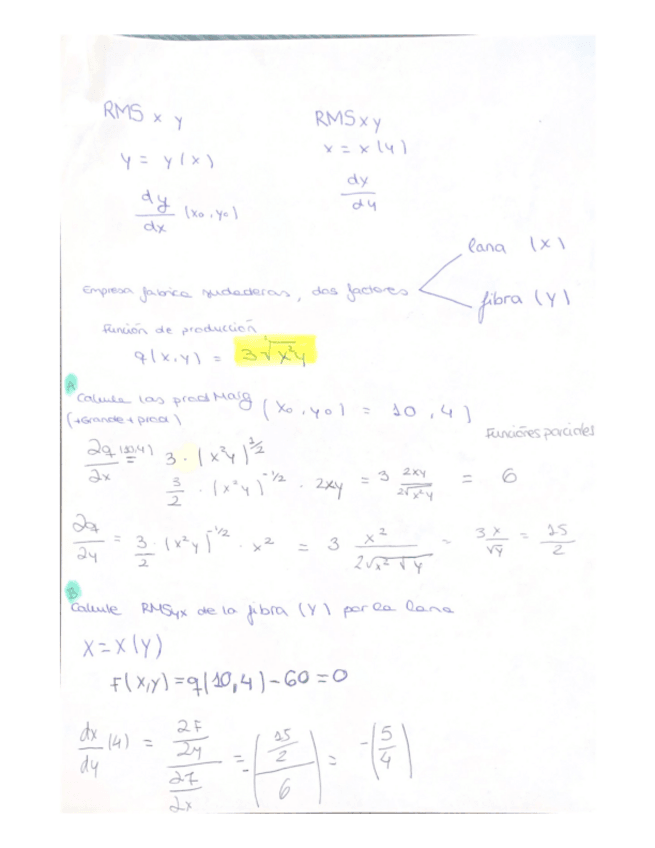 RMS x y
RMS x y
y = y(x)
x = x(y)
dy/dx (x0, y0)
dx/dy
lana (x)
Empresa fabrica sudaderas, dos factores
fibra (y)
Función de producción
q(x,y) = 3√x²y
A
Calcule las prod Marg (x0, y0) = 10, 4)
(+Grande + prod)
Funciones parciales
∂q/∂x (10,4) = 3 · (x²y)^1/2
3/2 · (x²y)^-1/2 · 2xy = 3 2xy/2√x²y = 6
∂q/∂y = 3/2 · (x²y)^-1/2 · x² = 3 x²/2√x² √y = 3x/√y = 15/2
B
Calcule RMSyx de la fibra (y) por la lana
x = x(y)
F(x,y) = q(10,4) - 60 = 0
dx/dy (4) = ∂F/∂y / ∂F/∂x = -(15/2 / 6) = -(5/4)